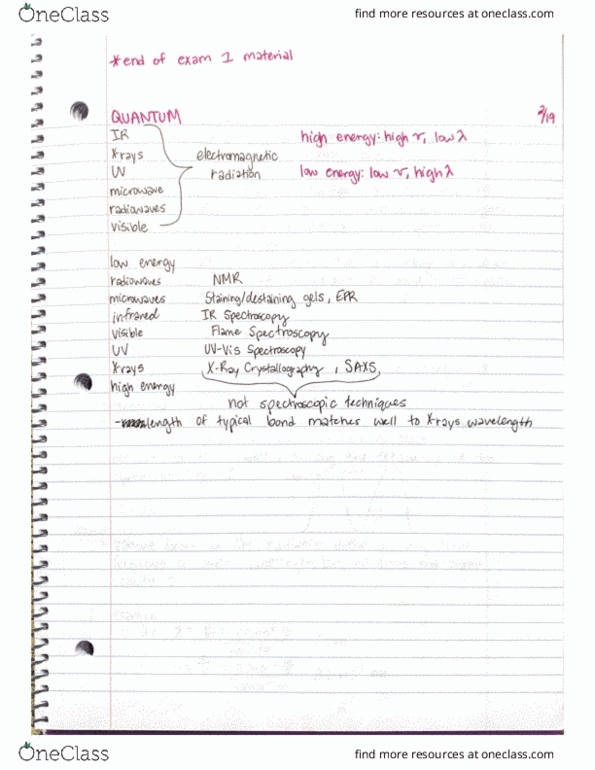 OneClass
find more resources at oneclass.com
*end of exam 1 material
QUANTUM
2/19
IR
high energy: high ν, low λ
X-rays
electromagnetic
UV
radiation
low energy: low ν, high λ
microwave
radiowaves
visible
low energy
radiowaves NMR
microwaves Staining/destaining gels, EPR
infrared IR Spectroscopy
visible Flame Spectroscopy
UV UV-Vis Spectroscopy
X-rays X-Ray Crystallography, SAXS,
high energy
not spectroscopic techniques
- length of typical bond matches well to X-rays wavelength
OneClass
find more resources at oneclass.com